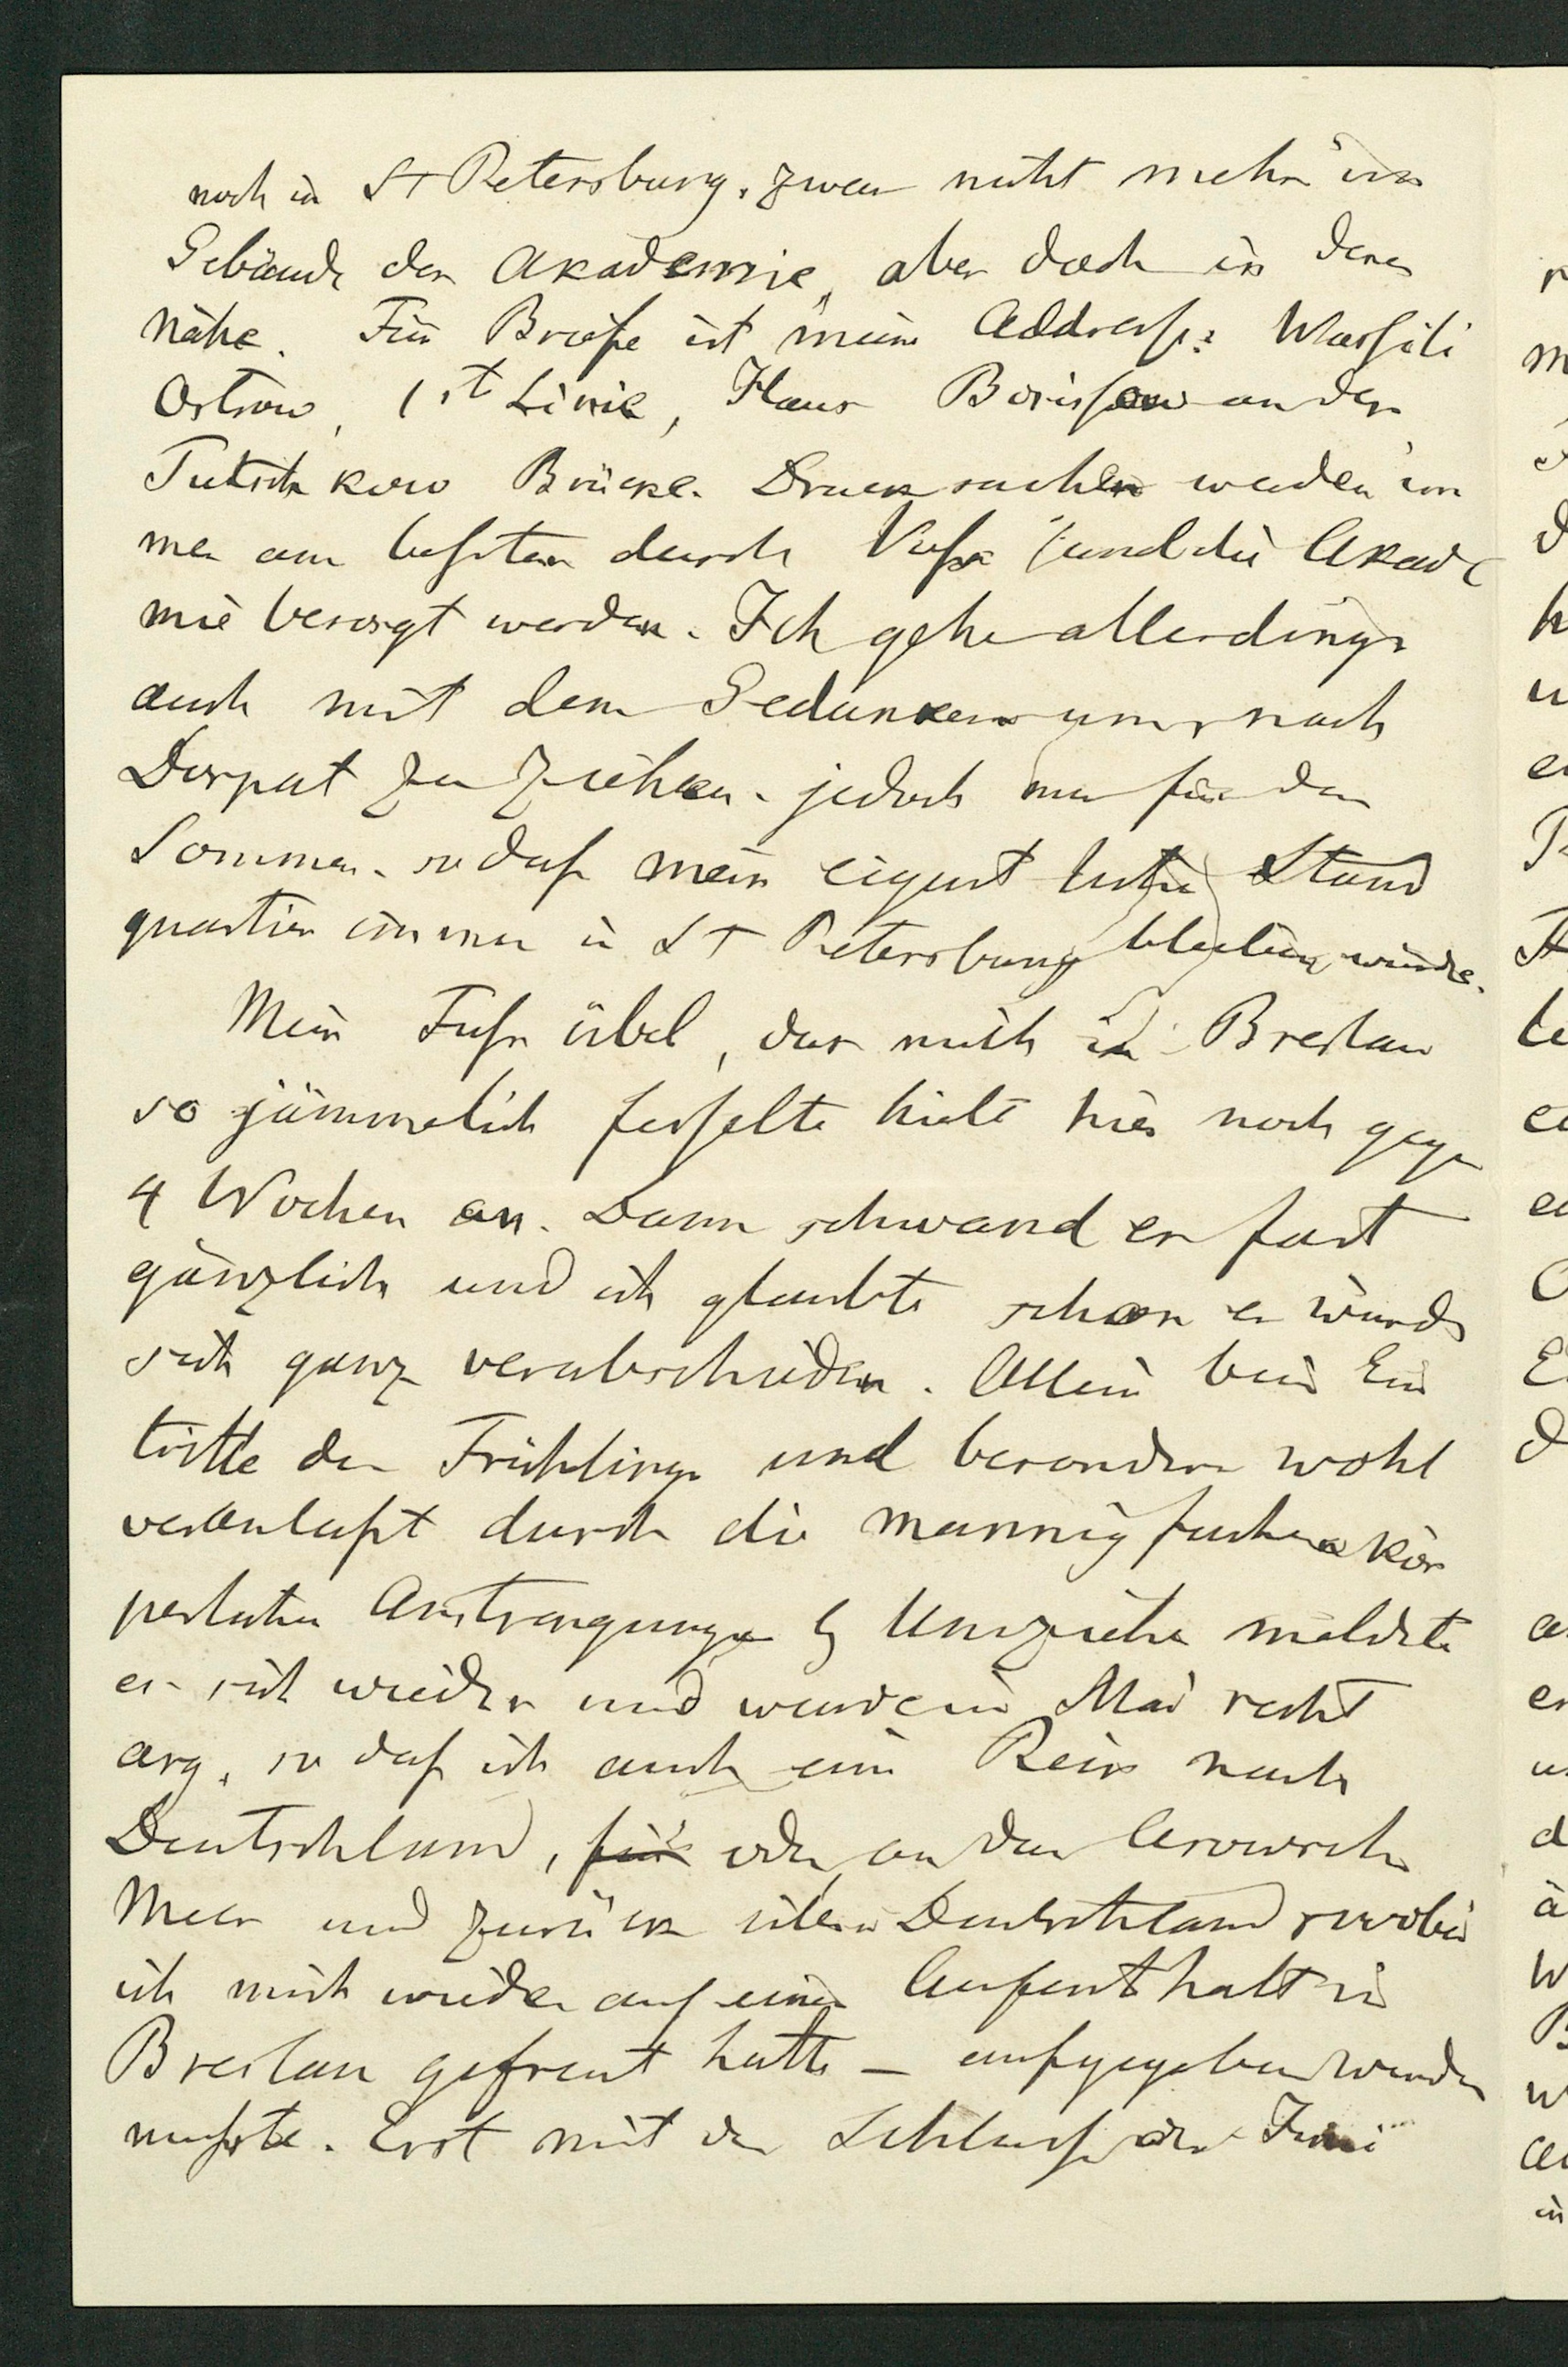 noch in St Petersburg, zwar nicht mehr im
Gebäude der Akademie, aber doch in deren
Nähe. Für Briefe ist meine Addresse: Wassili
Ostrow, 1st Linie, Haus Borissow an der
Tutschkow Brücke. Drucksachen werden im
mer am besten durch Voss und die Akade
mie besorgt werden. Ich gehe allerdings
auch mit dem Gedanken um, nach
Dorpat zu ziehen, jedoch nur für den
Sommer, so daß mein eigentliches Stand
quartier immer in St Petersburg bleiben würde.
Mein Fußübel, das mich in Breslau
so jämmerlich fesselte hielt hier noch gegen
4 Wochen an. Dann schwand es fast
gänzlich und ich glaubte schon es würde
sich ganz verabschieden. Allein beim Ein
tritte des Frühlings und besonders wohl
veranlaßt durch die mannigfachen kör
perlichen Anstrengungen bei Umziehen meldete
es sich wieder und wurde im Mai recht
arg, so daß ich auch eine Reise nach
Deutschland, für oder an das Asowsche
Meer und zurück über Deutschland, wobei
ich mich wieder auf einen Aufenthalt in
Breslau gefreut hatte – aufgegeben werden
mußte. Erst mit dem Schlusse des Juni